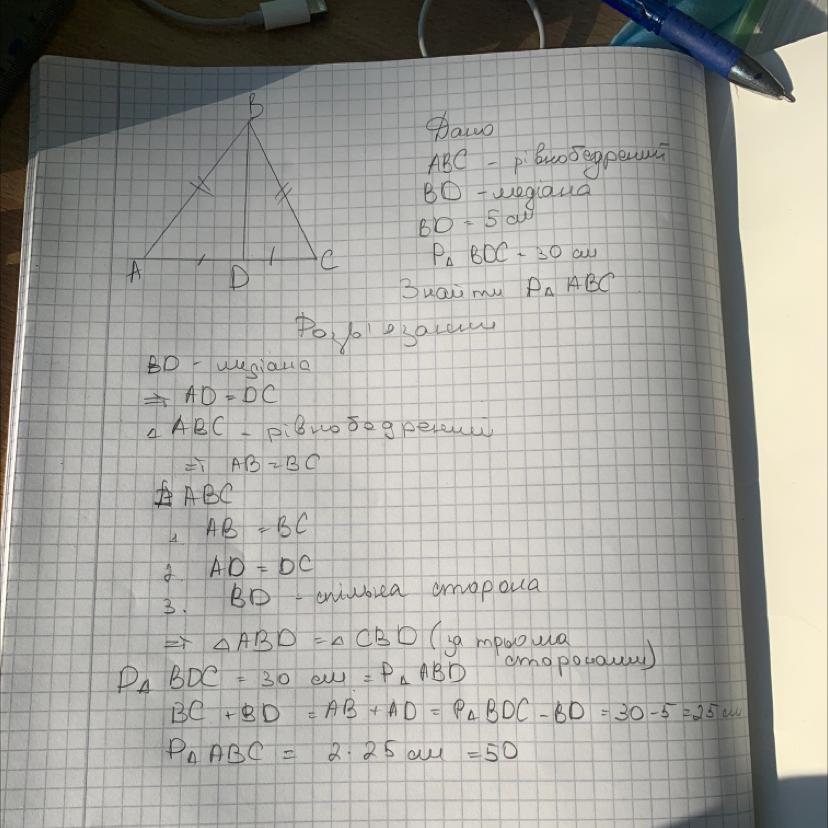 B
A
D
C
Дано
ABC - рівнобедрений
BD - медіана
BD = 5 см
P△ BDC = 30 см
Знайти P△ ABC
Розв'язання
BD - медіана
⇒ AD = DC
△ ABC - рівнобедрений
⇒ AB = BC
△ ABC
1. AB = BC
2. AD = DC
3. BD - спільна сторона
⇒ △ ABD = △ CBD (за трьома
сторонами)
P△ BDC = 30 см = P△ ABD
BC + BD = AB + AD = P△ BDC - BD = 30 - 5 = 25 см
P△ ABC = 2 · 25 см = 50